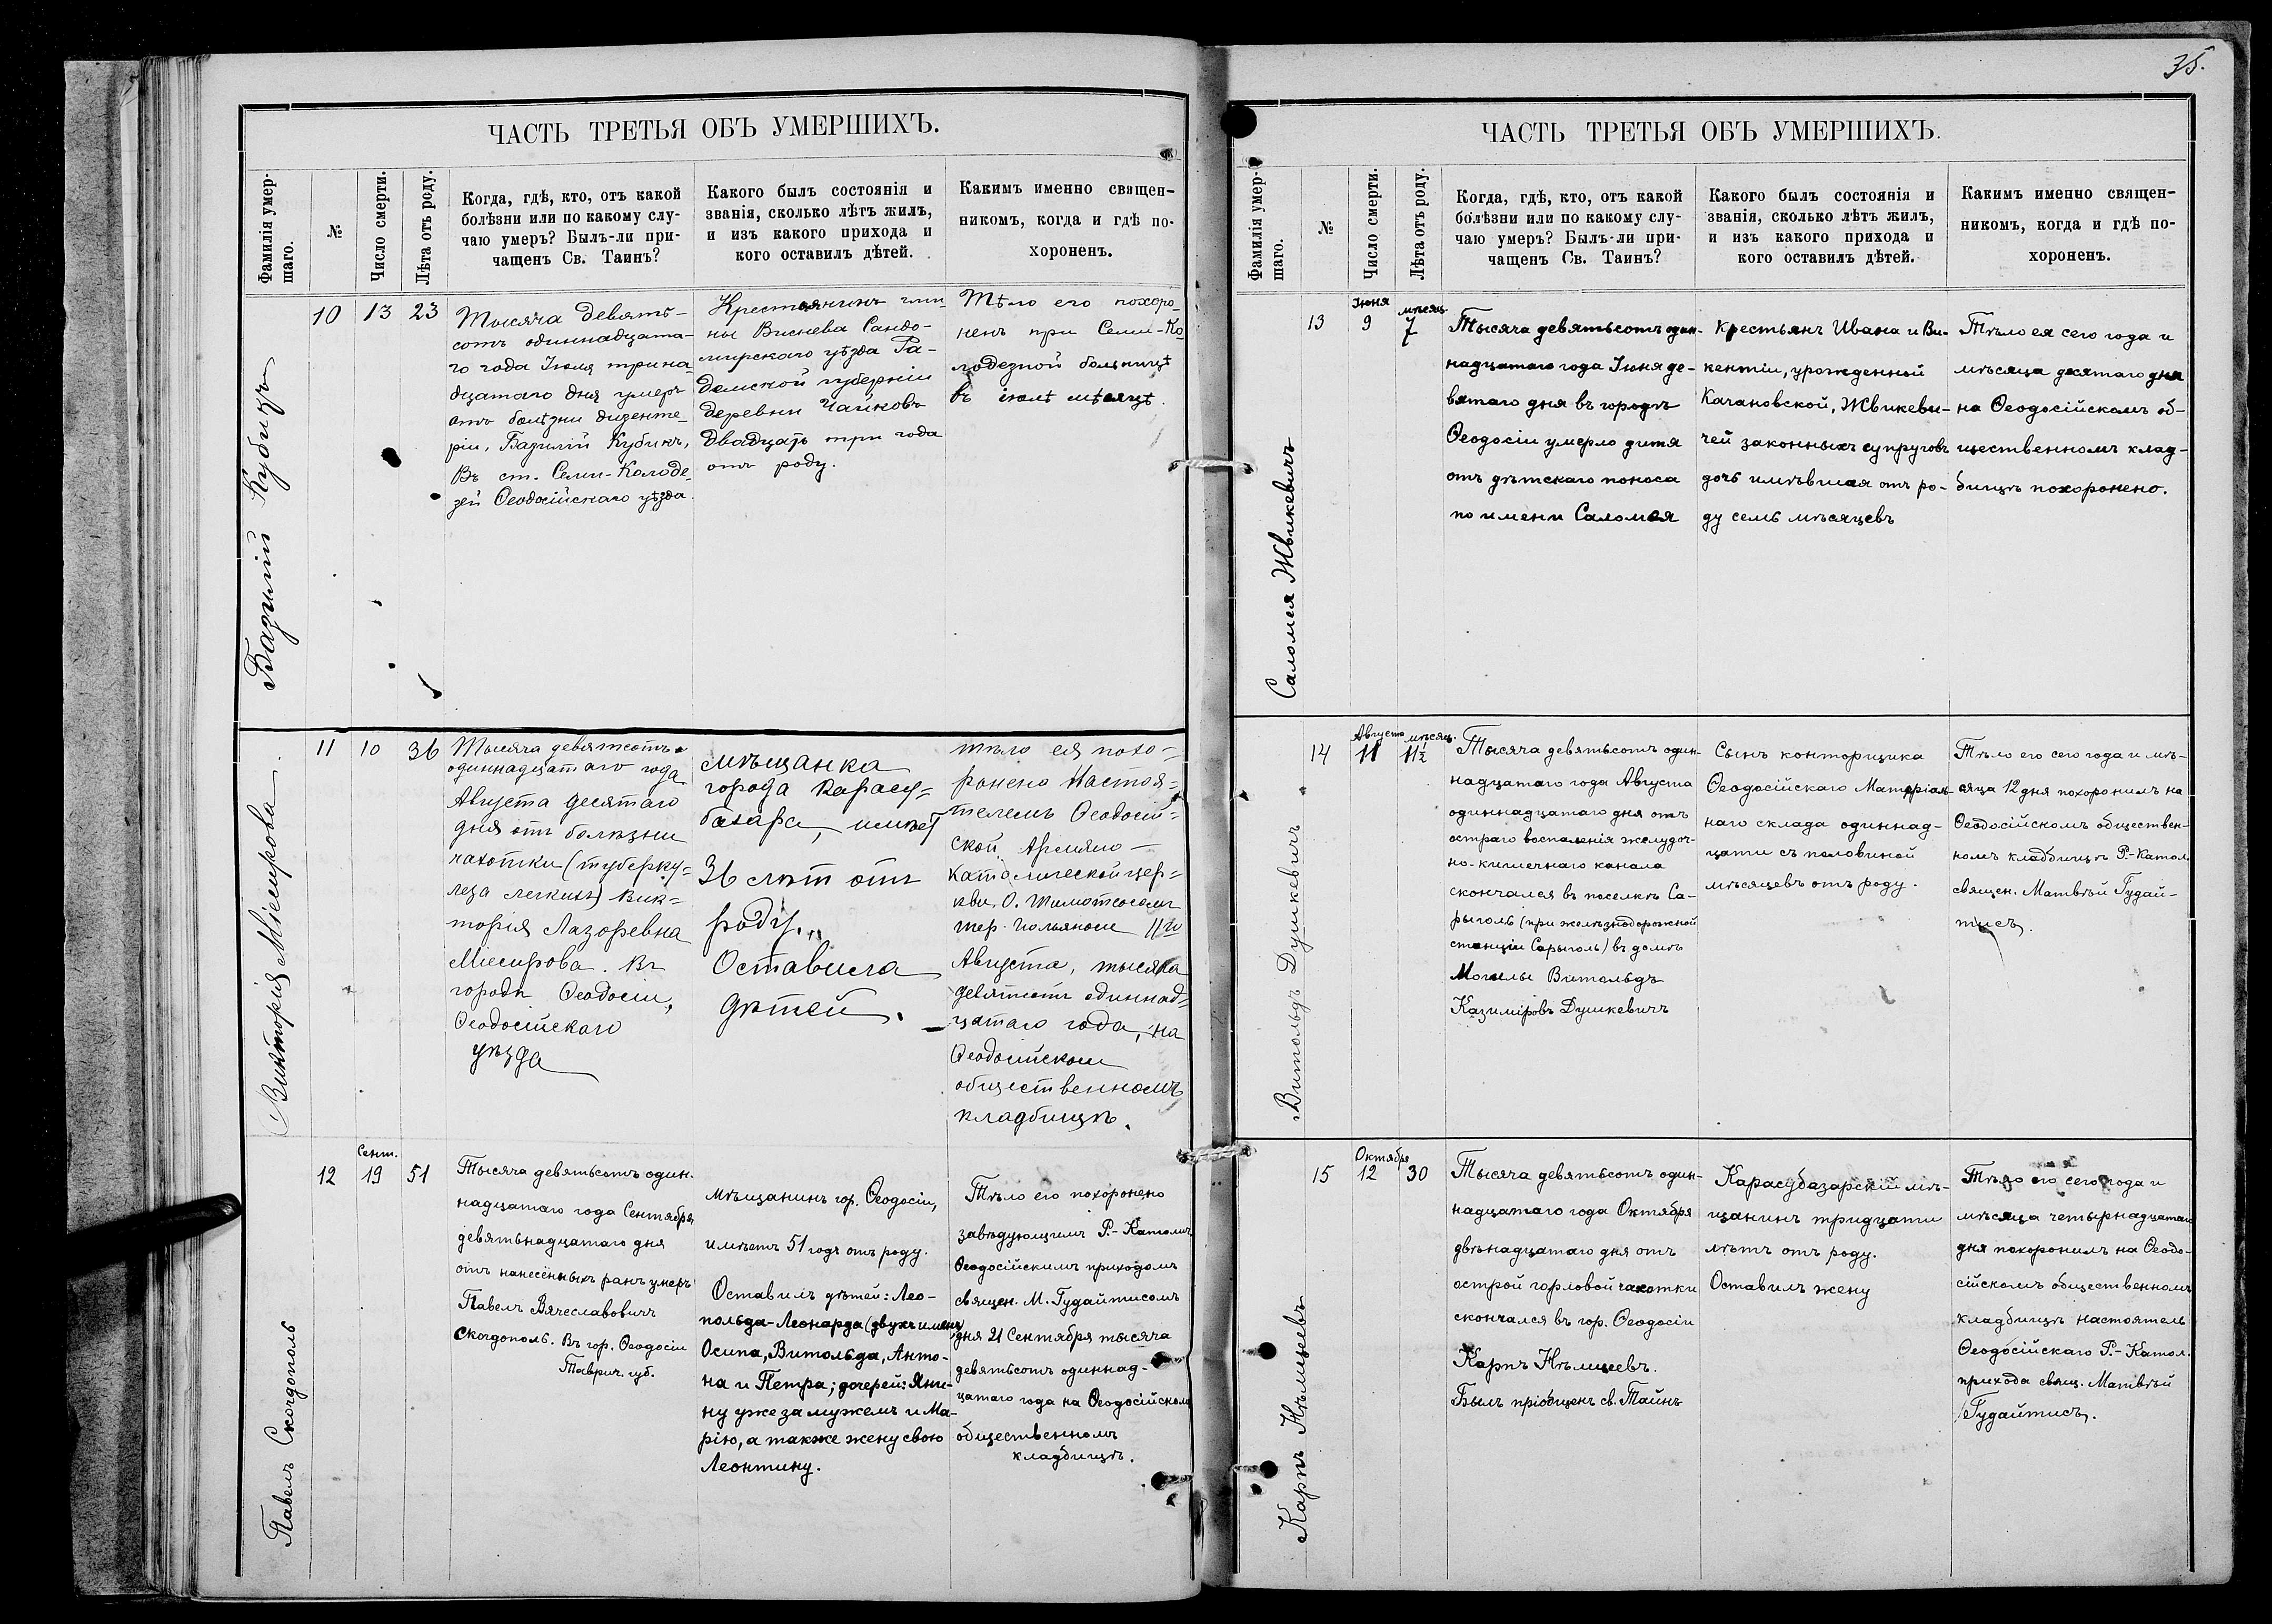 35.
ЧАСТЬ ТРЕТЬЯ ОБЪ УМЕРШИХЪ.
Фамилія умер-
шаго.
№
Число смерти.
Лѣта отъ роду.
Когда, гдѣ, кто, отъ какой
болѣзни или по какому слу-
чаю умеръ? Былъ-ли при-
чащенъ Св. Таинъ?
Какого былъ состоянія и
званія, сколько лѣтъ жилъ,
и изъ какого прихода и
кого оставилъ дѣтей.
Какимъ именно священ-
никомъ, когда и гдѣ по-
хороненъ.
Базилій Кубикъ
10
13
23
Тысяча девять-
сотъ одиннадцата-
го года Іюля трина-
дцатаго дня умеръ
отъ болѣзни дизенте-
ріи, Базилій Кубикъ,
Въ ст. Семи-Колоде-
зей Ѳеодосійскаго уѣзда.
Крестьянинъ гми-
ны Виснева Сандо-
мирскаго уѣзда Ра-
домской губерніи
деревни Чайковъ
двадцать три года
отъ роду.
Тѣло его похоро-
ненъ при Семи-Ко-
лодезной больницѣ
въ іюлѣ мѣсяцѣ.
Викторія Мисирова
11
10
36
Тысяча девятсотъ
одиннадцатаго года
Августа десятаго
дня отъ болѣзни
чахотки (туберку=
леза легкихъ) Вик=
торія Лазоревна
Мисирова. Въ
городѣ Ѳеодосіи,
Ѳеодосійскаго
уѣзда
мѣщанка
города Карасу=
базара, имѣет
36 лѣт отъ
роду.
Оставила
дѣтей.
тѣло ея похо-
ронено Настоя=
телемъ Ѳеодосій=
ской Армяно-
Католической цер=
кви, О.
11го
Августа, тысяча
девятсотъ одиннад=
цатаго года, на
Ѳеодосійском
общественномъ
кладбищѣ.
Павелъ Скогдополь
12
Сент.
19
51
Тысяча девятьсотъ один-
надцатаго года Сентября
девятьнадцатаго дня
отъ нанесённыхъ ранъ умеръ
Павелъ Вячеславовичъ
Скогдополь. Въ гор. Ѳеодосіи
Таврич. губ.
мѣщанинъ гор. Ѳеодосіи,
имѣетъ 51 годъ отъ роду.
Оставилъ дѣтей: Лео-
польда-Леонарда (двухъ именъ)
Осипа, Витольда, Анто-
на и Петра; дочерей: Яни-
ну уже замужемъ и Ма-
рію, а также жену свою
Леонтину.
Тѣло его похоронено
завѣдующимъ Р.-Католич.
Ѳеодосійскимъ приходомъ
священ. М. Гудайтисомъ
дня 21 Сентября тысяча
девятьсотъ одиннад-
цатаго года на Ѳеодосійскомъ
общественномъ
кладбищѣ.
ЧАСТЬ ТРЕТЬЯ ОБЪ УМЕРШИХЪ.
Фамилія умер-
шаго.
№
Число смерти.
Лѣта отъ роду.
Когда, гдѣ, кто, отъ какой
болѣзни или по какому слу-
чаю умеръ? Былъ-ли при-
чащенъ Св. Таинъ?
Какого былъ состоянія и
званія, сколько лѣтъ жилъ,
и изъ какого прихода и
кого оставилъ дѣтей.
Какимъ именно священ-
никомъ, когда и гдѣ по-
хороненъ.
Саломея Жвикевичъ
13
Іюня
9
мѣсяц.
7
Тысяча девятьсотъ один-
надцатаго года Іюня де-
вятаго дня въ городѣ
Ѳеодосіи умерло дитя
отъ дѣтскаго поноса
по имени Саломея
Крестьянъ Ивана и Ви-
кентіи, урожденной
Качановской, Жвикеви-
чей законныхъ супруговъ
дочь имѣвшая отъ ро-
ду семь мѣсяцевъ
Тѣло ея сего года и
мѣсяца десятаго дня
на Ѳеодосійскомъ об-
щественномъ клад-
бищѣ похоронено.
Витольдъ Душкевичъ
14
Августа
11
мѣсяц.
11½
Тысяча девятьсотъ один-
надцатаго года Августа
одиннадцатаго дня отъ
остраго воспаленія желудоч-
но-кишечнаго канала
скончался въ поселкѣ Са-
рыголь (при желѣзнодорожной
станціи Сарыголь) въ домѣ
Могилы Витольдъ
Казиміровъ Душкевичъ
Сынъ конторщика
Ѳеодосійскаго Матеріаль-
наго склада одиннад-
цати съ половиной
мѣсяцевъ отъ роду.
Тѣло его сего года и мѣ-
сяца 12 дня похоронилъ на
Ѳеодосійскомъ обществен-
номъ кладбищѣ Р.-Катол.
священ. Матвѣй Гудай-
тисъ.
Карпъ Нѣмцевъ
15
Октября
12
30
Тысяча девятьсотъ один-
надцатаго года Октября
двѣнадцатаго дня отъ
острой горловой чахотки
скончался въ гор. Ѳеодосіи
Карпъ Нѣмцевъ.
Былъ пріобщенъ св. Тайнъ
Карасубазарскій мѣ-
щанинъ тридцати
лѣтъ отъ роду.
Оставилъ жену
Тѣло его сего года и
мѣсяца четырнадцатаго
дня похоронилъ на Ѳеодо-
сійскомъ общественномъ
кладбищѣ настоятель
Ѳеодосійскаго Р.-Катол.
прихода свящ. Матвѣй
Гудайтисъ.